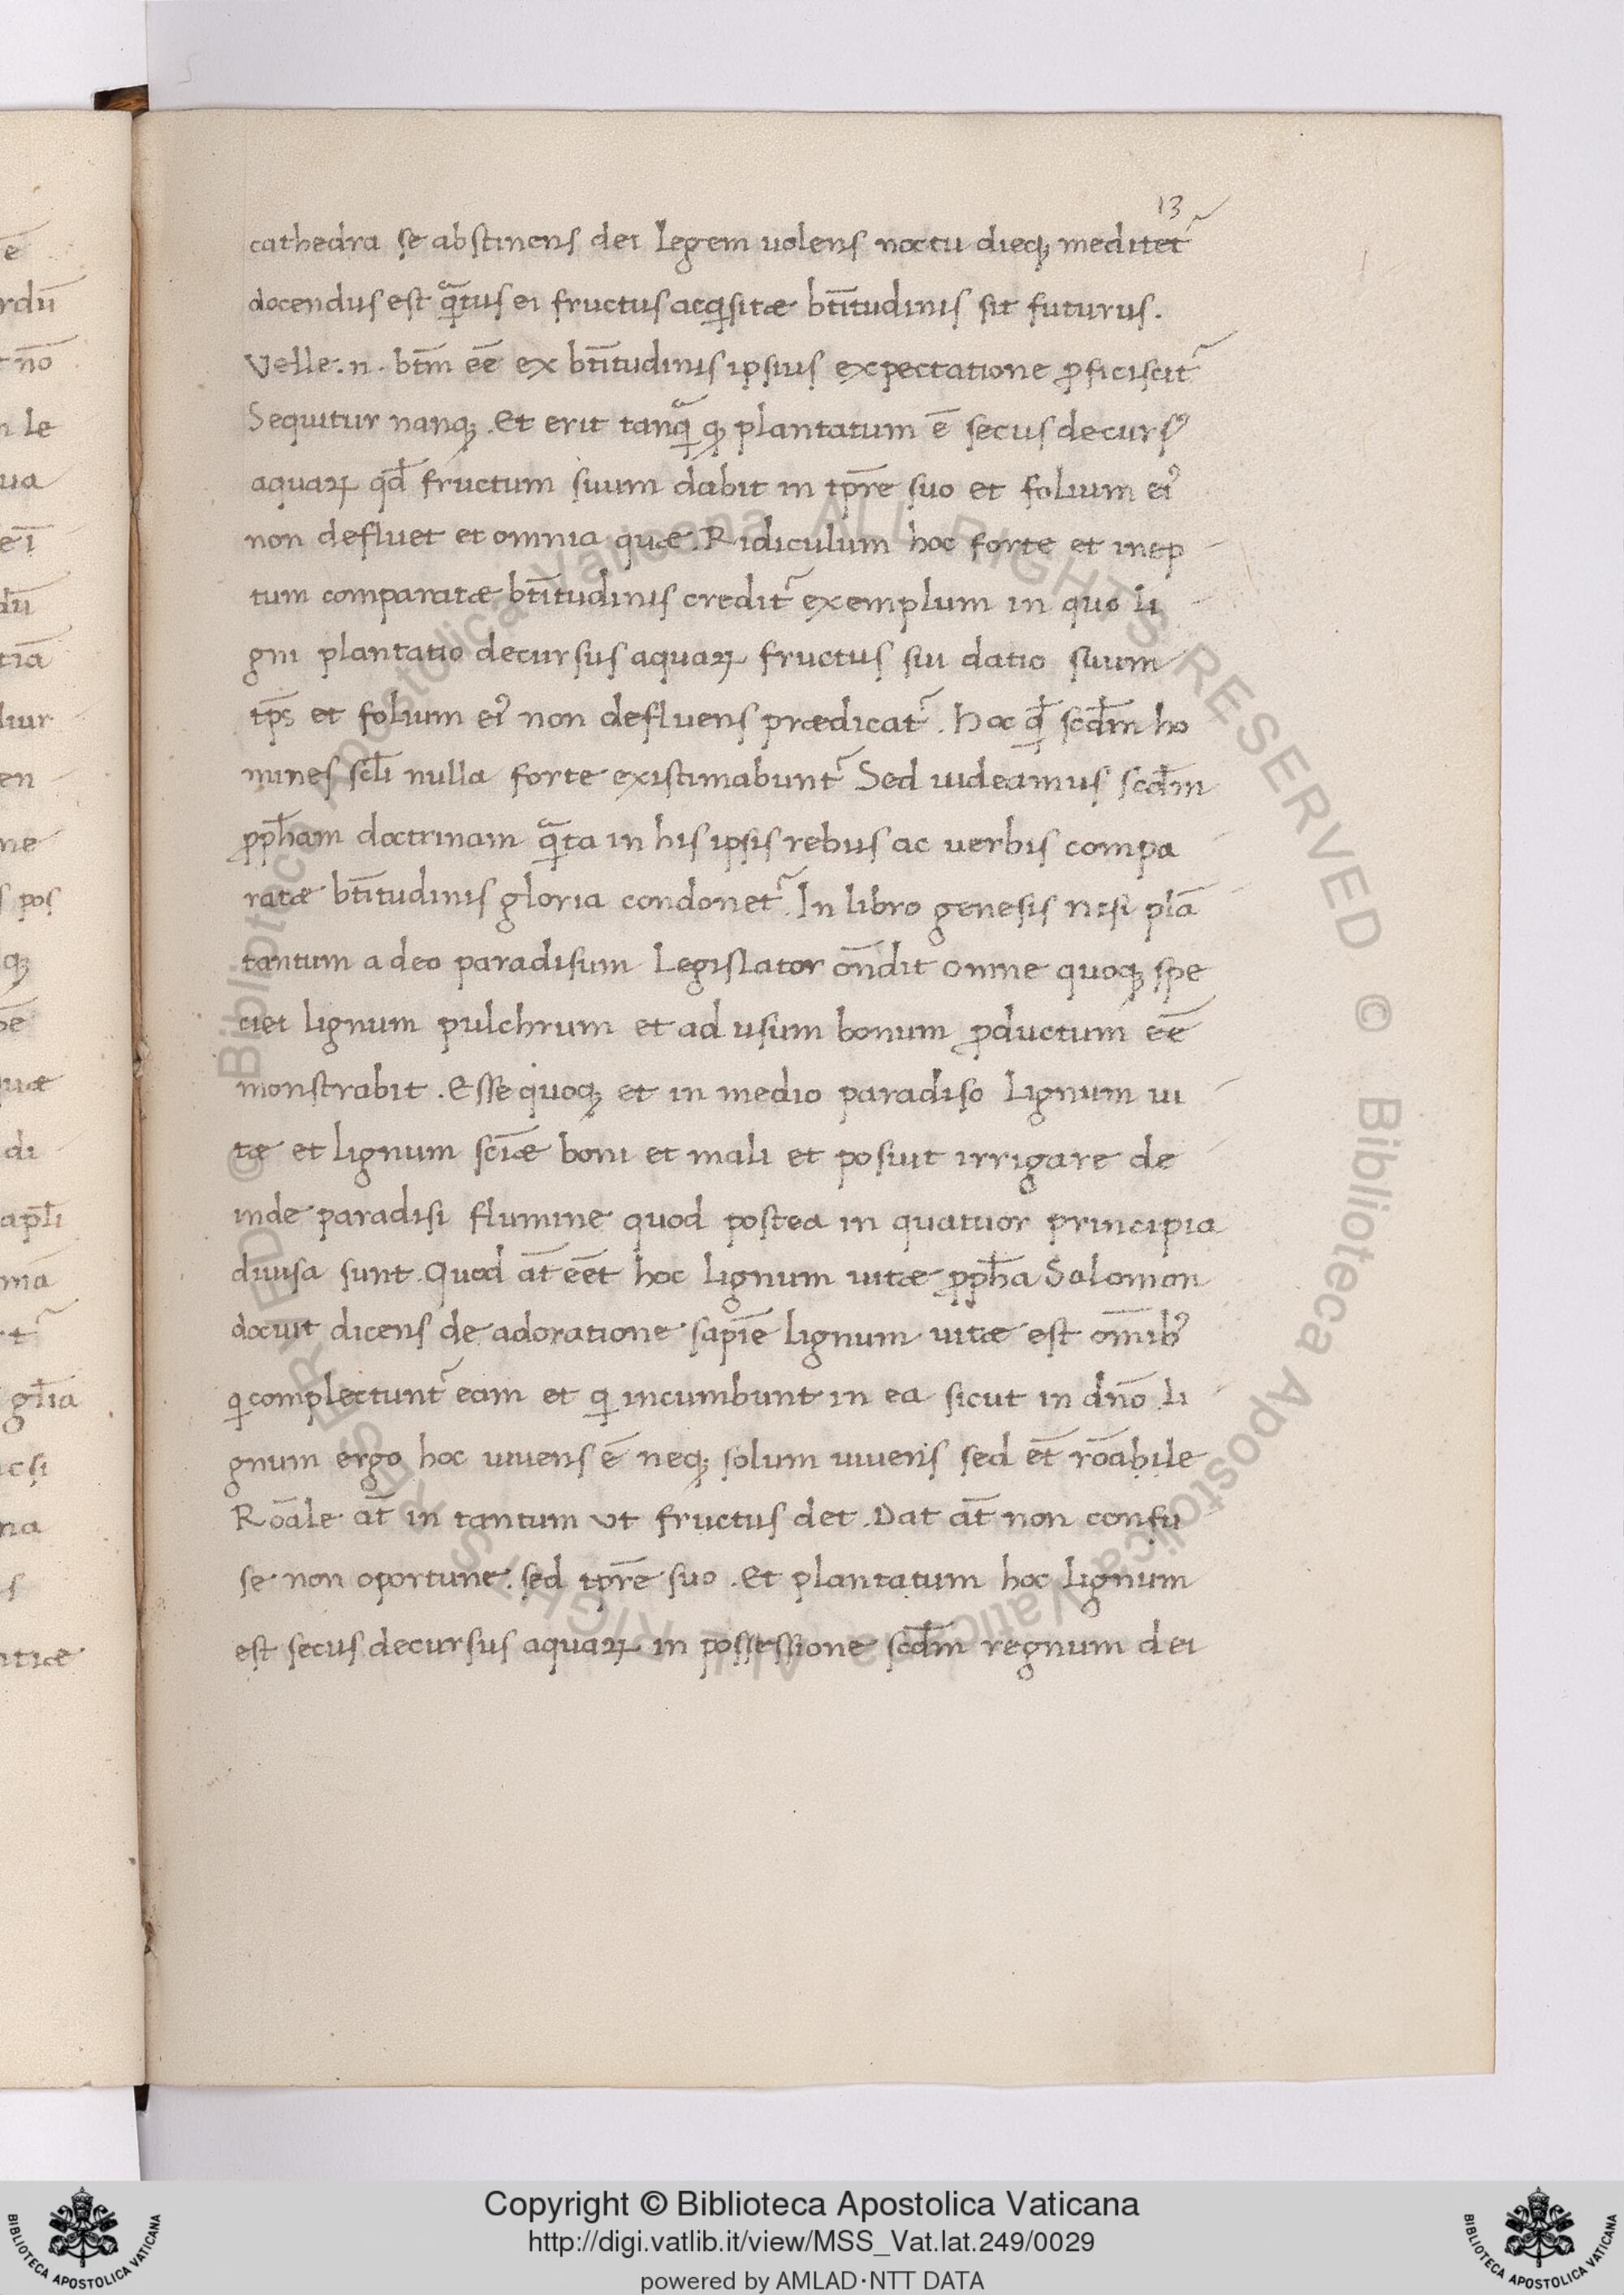 13
cathedra se abstinens dei legem uolens noctu dieq; meditet᷑
docendus est qᷓtus ei fructus acq̇sitæ bt̄itudinis sit futurus.
Velle .n. bt̄m eē ex bt̄itudinis ipsius expectatione ꝓficiscit᷑
Sequitur nanq; . Et erit tanqᷓ q; plantatum ē secus decursꝰ
aquaꝝ qd̄ fructum suum dabit in tp̄re suo et folium eiꝰ
non defluet et omnia quæ. Ridiculum hoc forte et inep
tum comparatæ bt̄itudinis credit᷑ exemplum in quo li
gni plantatio decursus aquaꝝ fructus sui datio suum
tp̄s et folium eiꝰ non defluens prædicat᷑. Hoc qd̄ scd̄m ho
mines scl̄i nulla forte existimabunt᷑ Sed uideamus scd̄m
ꝓph̄am doctrinam qᷓta in his ipsis rebus ac uerbis compa
ratæ bt̄itudinis gloria condonet᷑. In libro genesis nisi plā
tantum a deo paradisum Legislator on̄dit omne quoq; spe
ciei lignum pulchrum et ad usum bonum ꝓductum eē
monstrabit. Esse quoq; et in medio paradiso Lignum ui
tæ et lignum sc̄iæ boni et mali et posiut irrigare de
inde paradisi flumine quod postea in quatuor principia
diuisa sunt. Quod at̄ eēt hoc Lignum uitæ ꝓph̄a Salomon
docuit dicens de adoratione sapīe lignum uitæ est om̄ibꝰ
qi complectunt᷑ eam et qi incumbunt in ea sicut in dn̄o li
gnum ergo hoc uiuens ē neq; solum uiuens sed et̄ rōabile
Rōale at̄ in tantum ut fructus det. Dat at̄ non confu
se non oportune. sed tp̄re suo. Et plantatum hoc Lignum
est secus decursus aquaꝝ in possessione scd̄m regnum dei
Copyright © Biblioteca Apostolica Vaticana
http://digi.vatlib.it/view/MSS_Vat.lat.249/0029
powered by AMLAD·NTT DATA